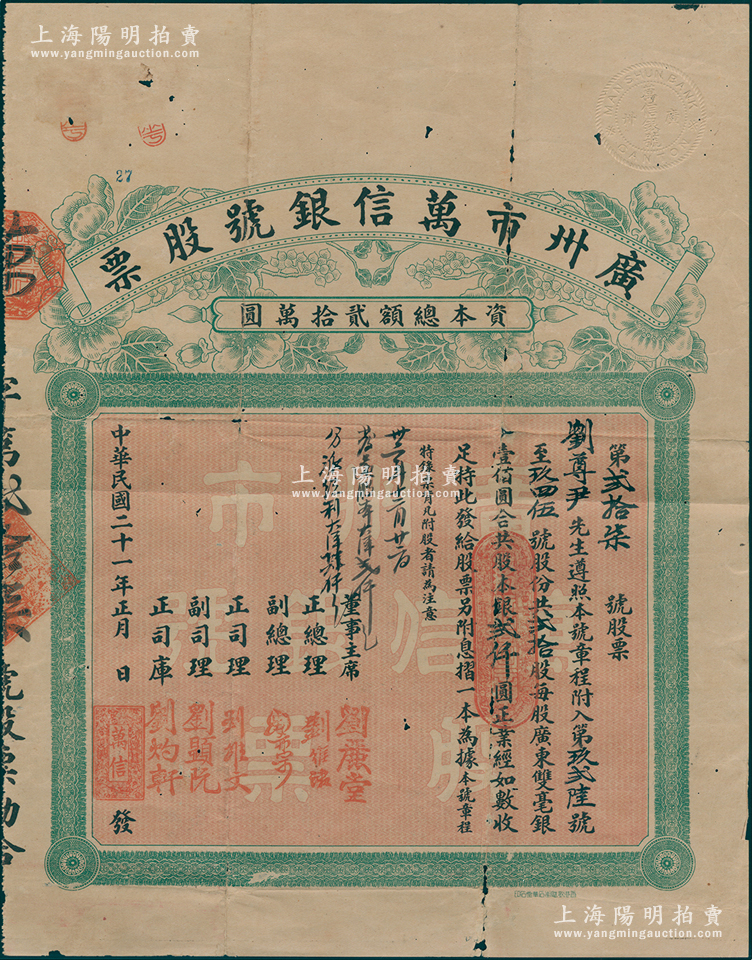 上海陽明拍賣
www.yangmingauction.com
27
廣州市萬信銀號股票
資本總額貳拾萬圓
第貳拾柒 號股票
劉尊尹先生遵照本號章程附入第玖貳陸號
至玖四伍號股份共貳拾股每股廣東雙毫銀
壹佰圓合共股本銀貳仟圓正業經如數收
足特此發給股票另附息摺一本為據本號章程
特錄票背凡附股者請為注意
董事主席 劉麗堂
正總理
副總理
正司理
副司理 劉顯阮
正司庫 劉灼軒
中華民國二十一年正月 日
萬信
發
號股票勘合
上海陽明拍賣
www.yangmingauction.com
上海陽明拍賣
www.yangmingauction.com